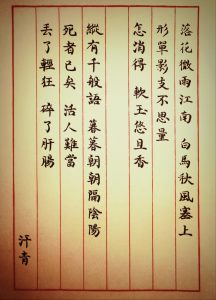 落花微雨江南 白馬秋風塞上
形單影支不思量
怎消得 軟玉悠且香
縱有千般語 暮暮朝朝隔陰陽
死者已矣 活人難當
丟了輕狂 碎了肝腸
汗青